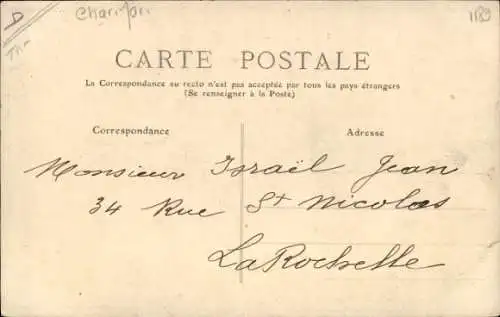 Charifon
1189
CARTE POSTALE
La Correspondance au recto n'est pas acceptée par tous les pays étrangers
(Se renseigner à la Poste)
Correspondance Adresse
Monsieur Israël Jean
34 Rue St Nicolas
La Rochelle